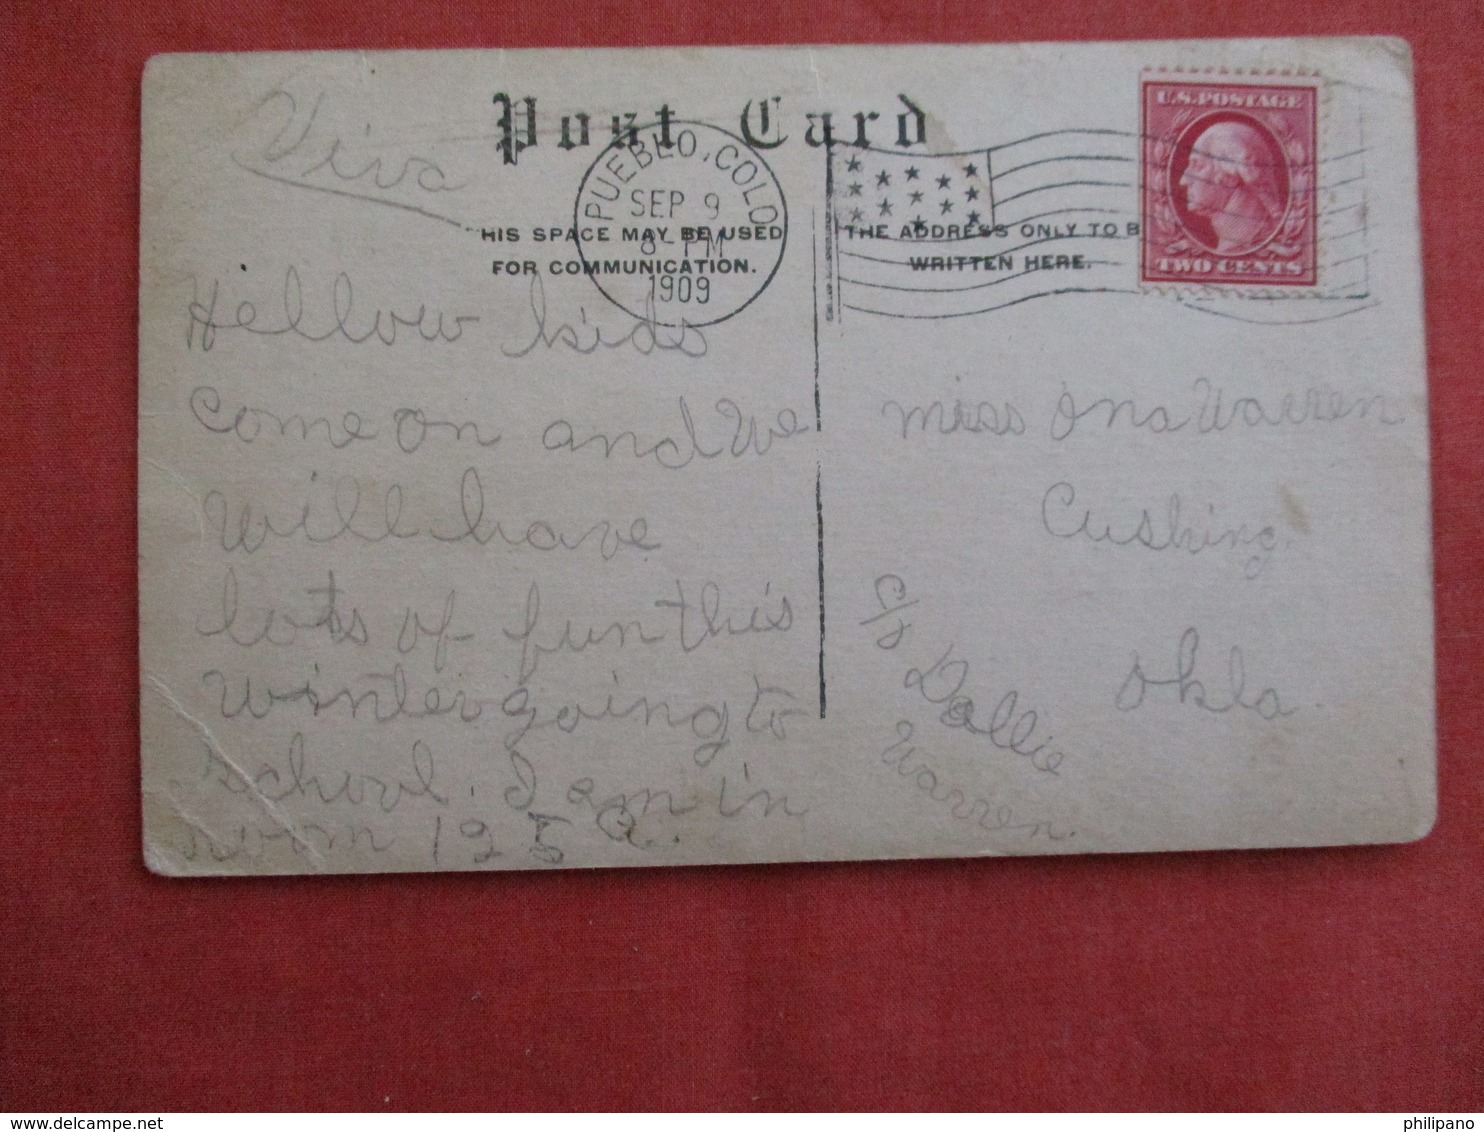 Viva
Post Card
PUEBLO, COLO
SEP 9
8-PM
1909
HIS SPACE MAY BE USED
FOR COMMUNICATION.
THE ADDRESS ONLY TO B
WRITTEN HERE.
U.S. POSTAGE
TWO CENTS
Hellow kids
come on and We
will have
lots of fun this
winter going to
school. I am in
room 125 a.
miss Ona Warren
Cushing.
Okla.
c/o Dollie
Warren.
philipano